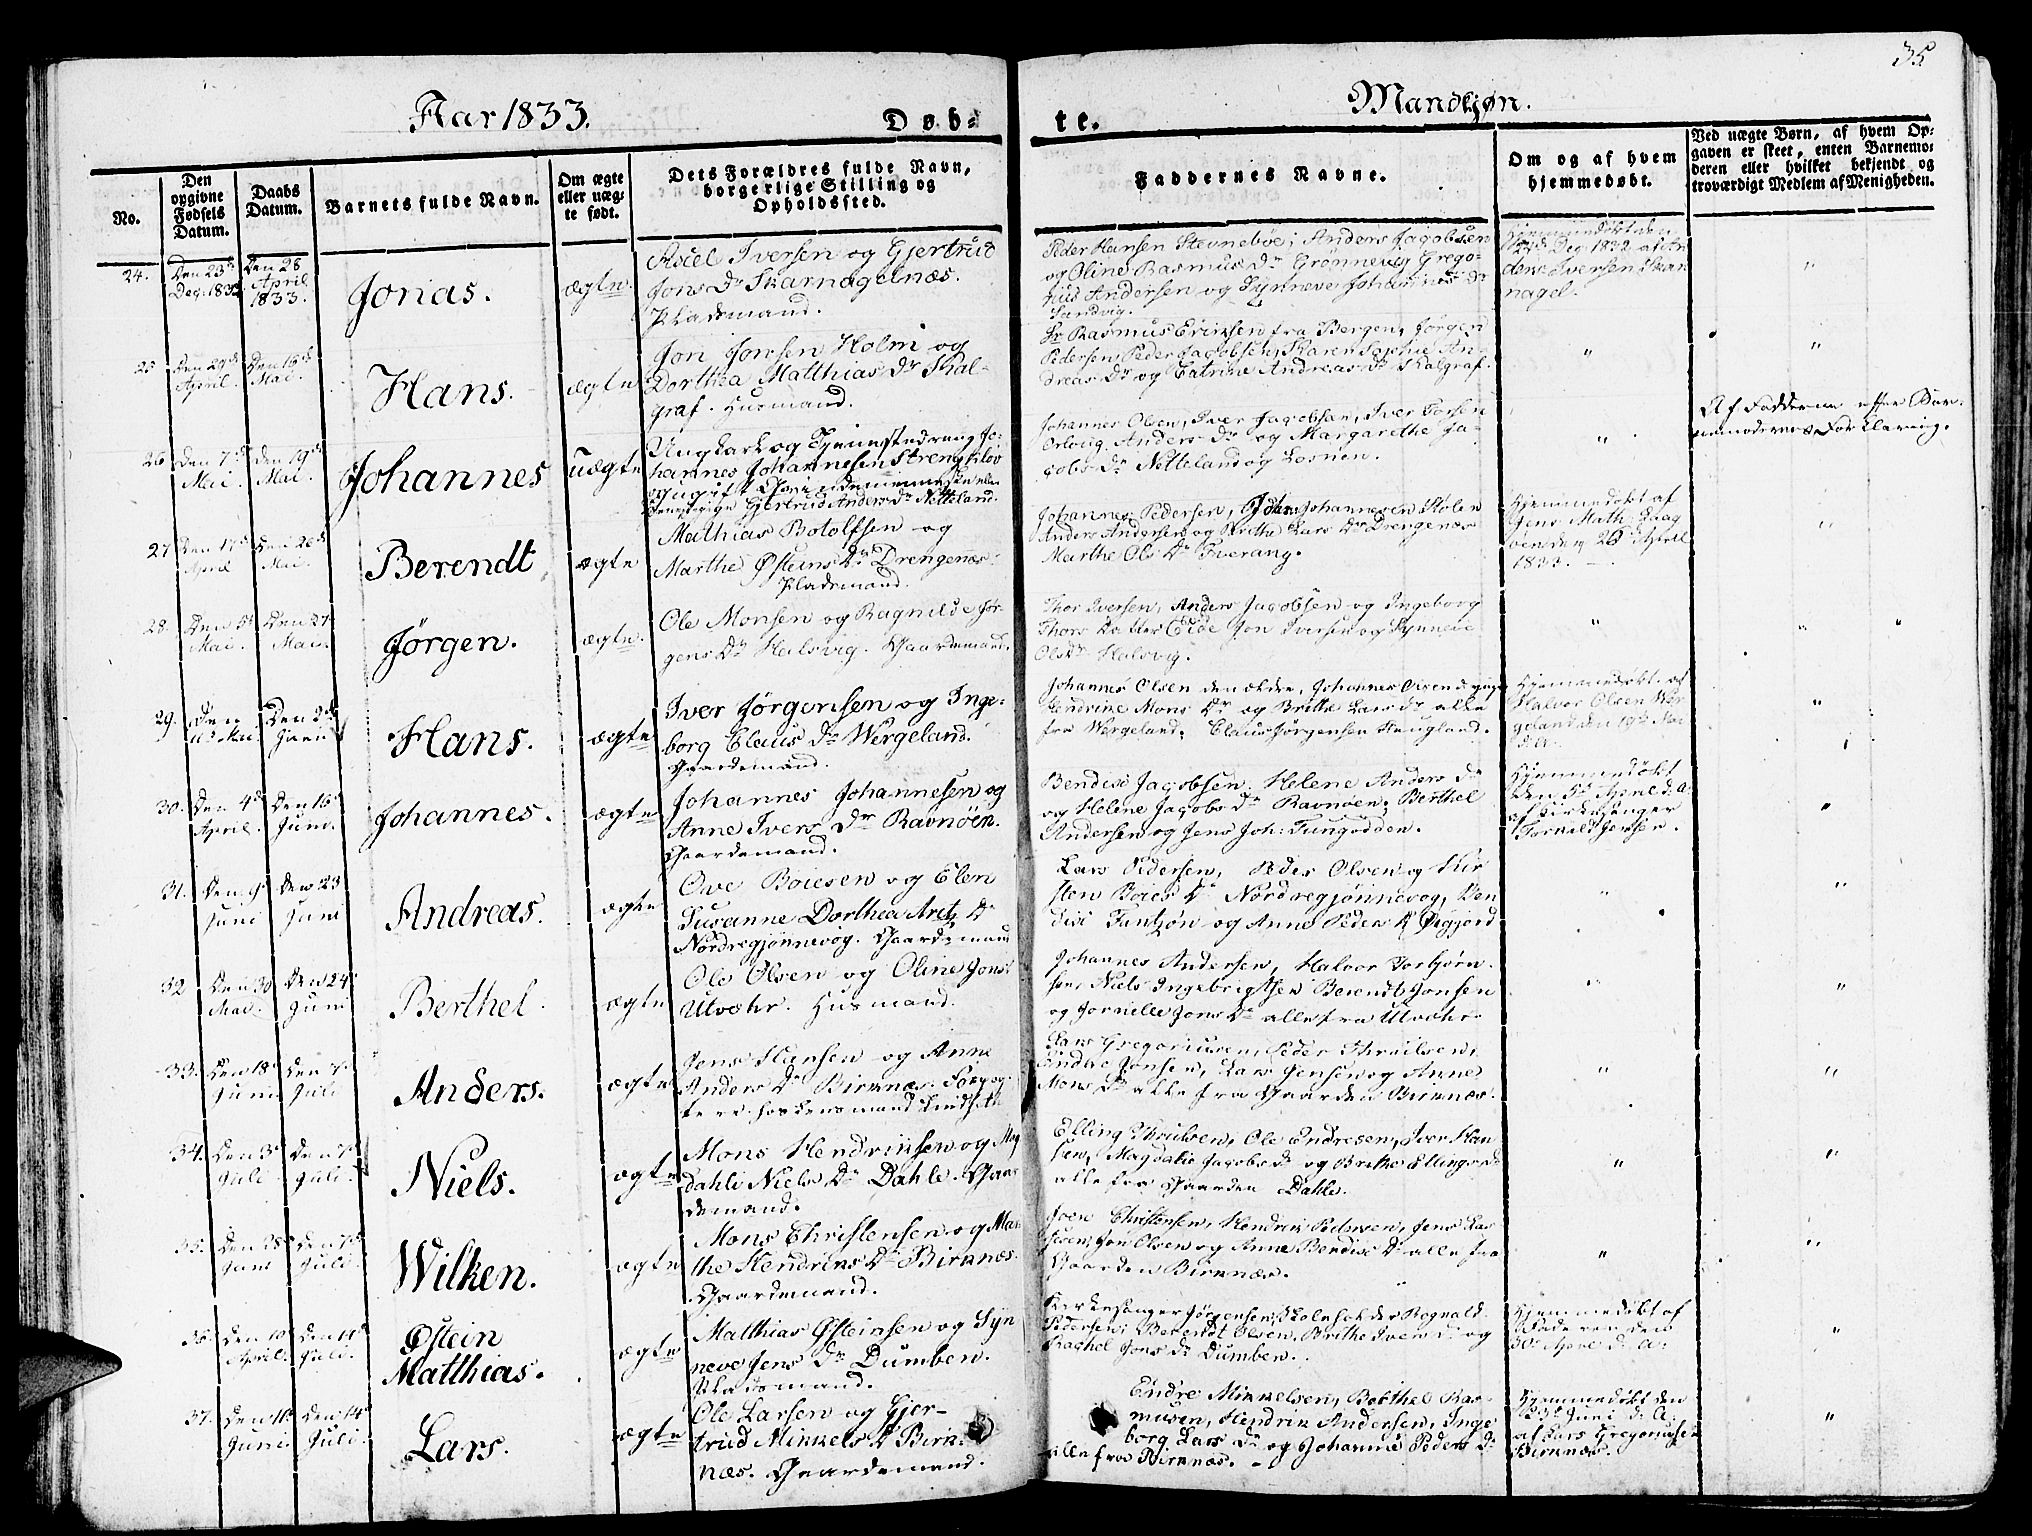 35
Aar 1833.
Døb-
te.
Mandkjøn.
No.
Den opgivne Fødsels Datum.
Daabs Datum.
Barnets fulde Navn.
Om ægte eller uægte født.
Dets Forældres fulde Navn, borgerlige Stilling og Opholdssted.
Faddernes Navne.
Om og af hvem hjemmedøbt.
Ved uægte Børn, af hvem Opgaven er skeet, enten Barnemoderen eller hvilket bekjendt og troværdigt Medlem af Menigheden.
24.
Den 23de Dec: 1832
Den 28 April 1833.
Jonas.
ægte.
Iversen og Gjertrud
Jons Dr Skarnagelnæs.
Pladsmand.
Peder Hansen Stevnebøe, Anders Jacobsen
og Oline Rasmus Dr Grønnevig Grego-
rius Andersen og Synneve Johannes Dr
Sandvig.
Hjemmedøbt den
Dec: 1832 af An-
ders Iversen Skar-
nagel.
25
Den 29de April.
Den 16de Mai.
Hans.
ægte
Jon Jonsen Holm og
Dorthea Matthias Dr Skal-
graf. Husmand.
Sr Rasmus Eriksen fra Bergen, Jørgen
Pedersen, Peder Jacobsen, Karen Sophie An-
dreas Dr og Catrine Andreas Dr Skalgraf.
26
Den 7de Mai.
Den 19de Mai.
Johannes
uægte
Ungkarl og Tjenestedreng Jo-
hannes Johannesen
Gjertrud Anders Dr Netteland.
Johannes Olsen, Iver Jacobsen, Iver
Anders Dr og Margarethe Ja-
cobs Dr Netteland og
Af Fadderne efter Bar-
nemoderens Forklaring.
27
Den 17de April
Den 26de Mai.
Berendt
ægte
Mathias Botolfsen og
Marthe Østeins Dr Drengenæs.
Pladsmand.
Johannes Pedersen, Johannesen
Anders Andersen og Brithe Lars Dr Drengenæs
Marthe Ols Dr Tverang.
Hjemmedøbt af
Jens Math:
den 20de April
1833.
28.
Den 5te Mai.
Den 27 Mai.
Jørgen.
ægte.
Ole Monsen og Ragnilde Jør-
gens Dr Halsvig. Gaardemand.
Thor Iversen, Anders Jacobsen og Ingeborg
Thors Datter Eide Jon Iversen og Synneve
Ols Dr Halsvig.
29.
Den 11te Mai.
Den 2de Juni
Hans.
ægte
Iver Jørgensen og Inge-
borg Claus Dr Wergeland.
Gaardemand.
Johannes Olsen den ældre, Johannes Olsen d: yngre
Hendrine Mons Dr og Britha Lars Dr alle
fra Wergeland. Claus Jørgensen Haugland.
Hjemmedøbt af
Halvor Olsen Wer-
geland den 19de Mai
d: A:
30.
Den 4de April.
Den 16de Juni.
Johannes.
ægte
Johannes Johannesen og
Anne Ivers Dr Ravnøen.
Gaardemand.
Bendix Jacobsen, Helene Anders Dr
og Helene Jacobs Dr Ravnøen, Berthel
Andersen og Jens Joh: Tungodden.
Hjemmedøbt
den 5te April d. A.
af Kirkesanger
Jensen.
31.
Den 9de Juni
Den 23 Juni
Andreas.
ægte
Ove Boiesen og Elen
Susanne Dorthea Aretz Dr
Nordregjønnevog. Gaardemand
Lars Pedersen, Peder Olsen og Kir-
sten Boies Dr Nordregjønnevog, Ben-
dix og Anne Peders Dr
32
Den 30 Mai.
Den 24 Juni
Berthel.
ægte
Ole Olsen og Oline Jons Dr
Utvær. Husmand.
Johannes Andersen, Halvor Torbjørn-
sen, Niels Ingebrigtsen Berendt Jonsen
og Jornille Jons Dr alle fra Utvær
33.
Den 18de Juni
Den 7de Juli
Anders.
ægte
Jens Hansen og Anne
Anders Dr Birknæs.
Lars Gregoriusen, Peder
Endre Jonsen, Lars Jensen og Anne
Mons Dr alle fra Gaarden Birknæs.
34.
Den 3de Juli
Den 7de Juli.
Niels.
ægte
Mons Hendriksen og Mag-
dahli Niels Dr Dahle. Gaar-
demand.
Elling Ole Endresen, Iver Han-
sen, Magdalie Jacobs Dr og Brithe Ellings Dr
alle fra Gaarden Dahle.
35.
Den 28 Juni
Den 7de Juli.
Wilken.
ægte
Mons Christensen og Mar-
the Hendriks Dr Birknæs.
Gaardemand.
Joen Christensen, Hendrik Pedersen, Jens Lar-
sen, Jon Olsen og Anne Bendix Dr alle fra
Gaarden Birknæs.
36.
Den 10 April.
Den 14de Juli.
Østein
Matthias.
ægte
Matthias Østeinsen og Syn-
neve Jens Dr Dumben.
Pladsmand.
Kirkesanger Jørgensen, Skoleholder Rognald
Pedersen, Berendt Olsen, Brithe Ivers Dr og
Rachel Jons Dr Dumben.
Hjemmedøbt af
Faderen den
30te April d: A:
37.
Den 11te Juni.
Den 14de Juli.
Lars.
ægte
Ole Larsen og Gjer-
trud Mikkels Dr Birk-
næs. Gaardemand.
Endre Mikkelsen, Berthel Ras-
musen, Hendrik Andersen, Inge-
borg Lars Dr og Johanne Peders Dr
alle fra Birknæs.
Hjemmedøbt den
23de Juni d: A
af Lars Gregoriusen
Birknæs.